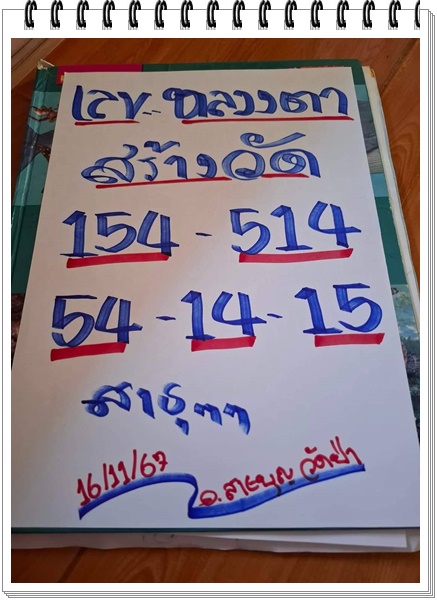 เลข.. หลวงตา
สร้างวัด
154 - 514
54 - 14 - 15
สาธุๆๆ
16/11/67
อ. สายบุญ วัดป่า